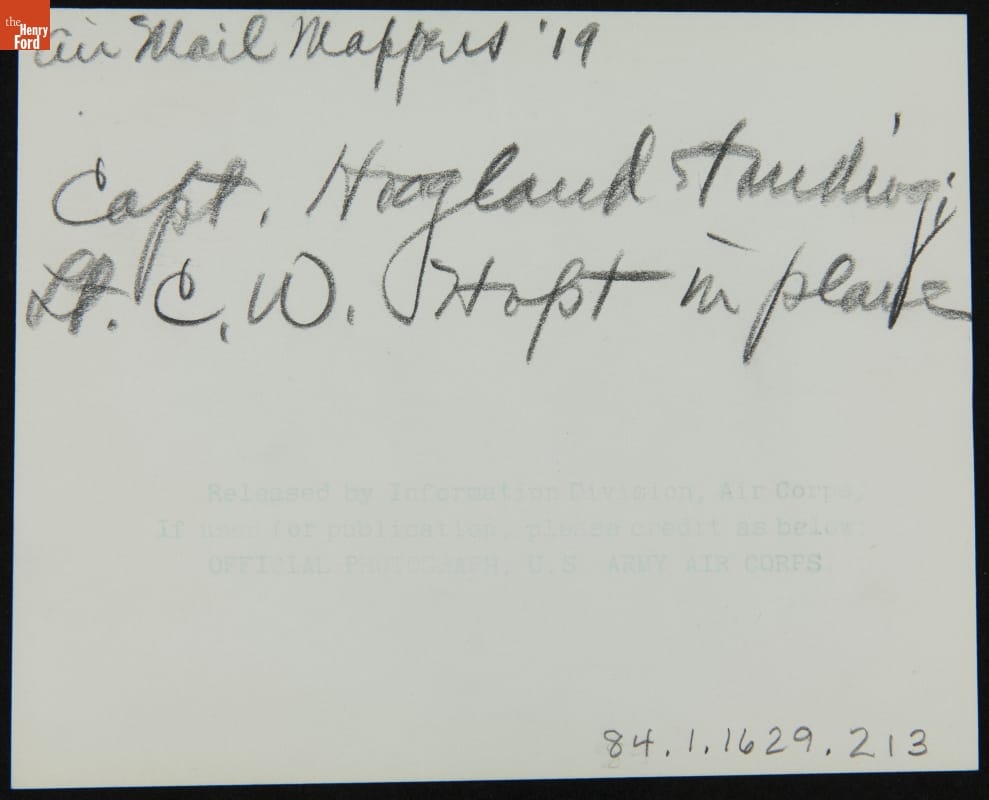 the
Henry
Ford
Air Mail Mappers '19
Capt. Hoagland standing;
Lt. C. W. Hopt in plane
Released by Information Division, Air Corps,
If used for publication, please credit as below:
OFFICIAL PHOTOGRAPH, U.S. ARMY AIR CORPS
84.1.1629.213